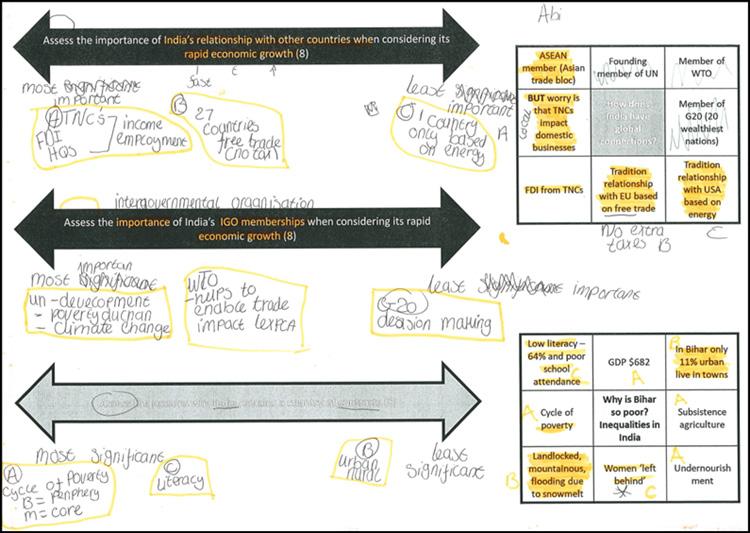 Abi
Assess the importance of India's relationship with other countries when considering its
rapid economic growth (8)
most
important
least
important
A TNC's
FDI
HQS
income
employment
B 27
countries
free trade
(no tax)
C 1 country
only based
on energy
A
ASEAN
member (Asian
trade bloc)
Founding
member of UN
Member of
WTO
BUT worry is
that TNCs
impact
domestic
businesses
How does
India have
global
connections?
Member of
G20 (20
wealthiest
nations)
FDI from TNCs
Tradition
relationship
with EU based
on free trade
Tradition
relationship
with USA
based on
energy
No extra
taxes B
C
intergovernmental organisation
Assess the importance of India's IGO memberships when considering its rapid
economic growth (8)
most
least
important
un - development
- poverty
- climate change
WTO
- helps to
enable trade
impact
G-20
decision making
most significant
least
significant
A
cycle of Poverty
B = Periphery
m = core
C
literacy
B
urban
rural
Low literacy –
64% and poor
school
attendance
C
GDP $682
A
B
In Bihar only
11% urban
live in towns
A Cycle of
poverty
Why is Bihar
so poor?
Inequalities in
India
A
Subsistence
agriculture
B
Landlocked,
mountainous,
flooding due
to snowmelt
Women 'left
behind'
C
A
Undernourish
ment